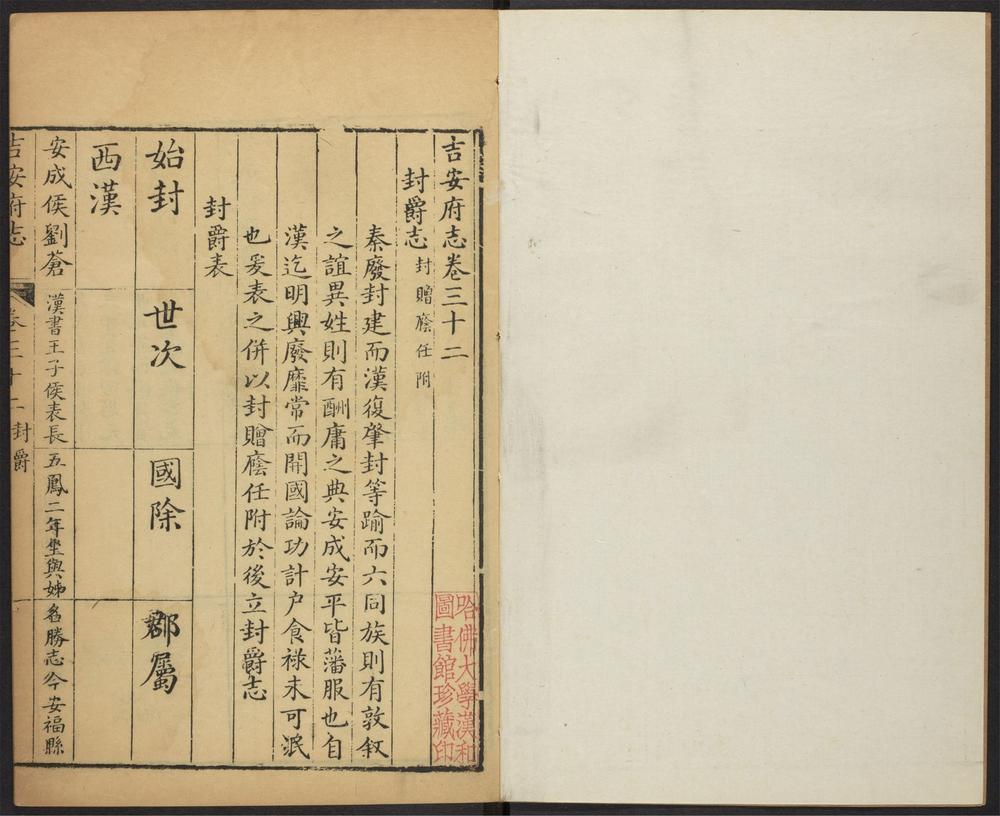 吉安府志卷三十二
封爵志 封贈廕任附
秦廢封建而漢復肇封等踰而六同族則有敦叙
之誼異姓則有酬庸之典安成安平皆藩服也自
漢迄明興廢靡常而開國論功計户食祿未可泯
也爰表之併以封贈廕任附於後立封爵志
封爵表
始封 世次 國除 郡屬
西漢
安成侯劉蒼 漢書王子侯表長 五鳳二年坐與姊 名勝志今安福縣
吉安府志 卷三十二 封爵
哈佛大學漢和
圖書館珍藏印